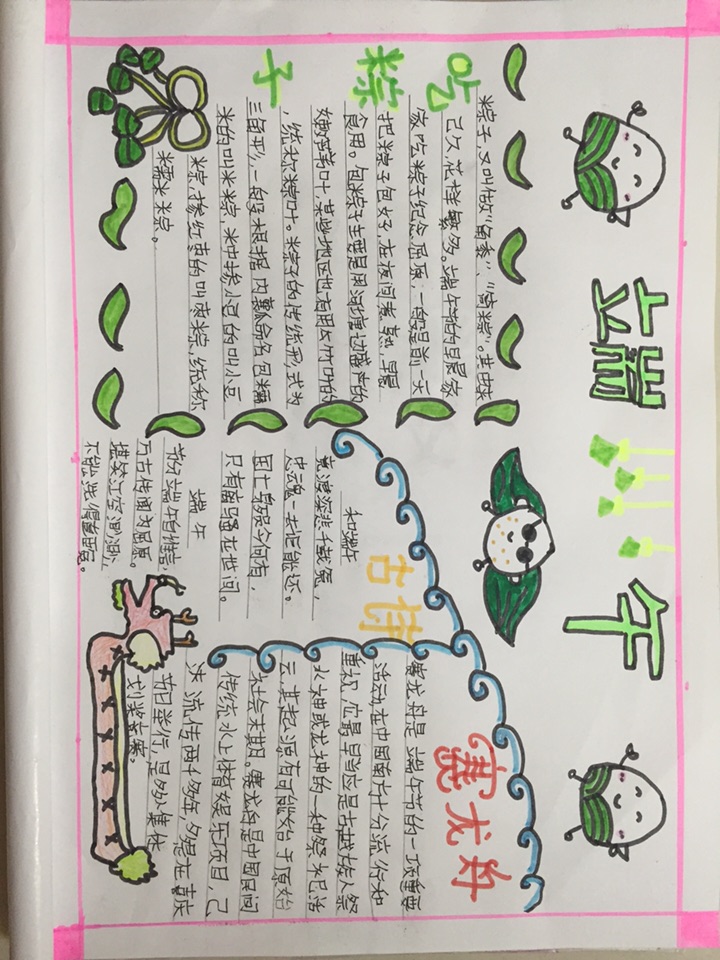 端午
吃粽子
粽子,又叫做"角黍"、"筒粽"。其由来
已久,花样繁多。端午节的早晨家
家吃粽子纪念屈原,一般是前一天
把粽子包好,在夜间煮熟,早晨
食用。包粽子主要是用河塘边盛产的
嫩芦苇叶,某些地区也有用竹叶的
,统称粽叶。粽子的传统形式为
三角形,一般根据内瓤命名,包糯
米的叫米粽,米中掺小豆的叫小豆
粽,掺红枣的叫枣粽,统称
糯米粽。
古诗
和端午
竞渡深悲千载冤,
忠魂一去讵能还。
国亡身殒今何有,
只有离骚在世间。
端午
节分端午自谁言,
万古传闻为屈原。
堪笑江空渺渺,
不能洗得直臣冤。
赛龙舟
赛龙舟是端午节的一项重要
活动,在中国南方十分流行和
重视,它最早当应是古越族人祭
水神或龙神的一种祭祀活
云,其起源有可能始于原始
社会末期。赛龙舟是中国民间
传统水上体育娱乐项目,已
流传两千多年,多是在喜庆
节日举行,是多人集体
划桨竞赛。